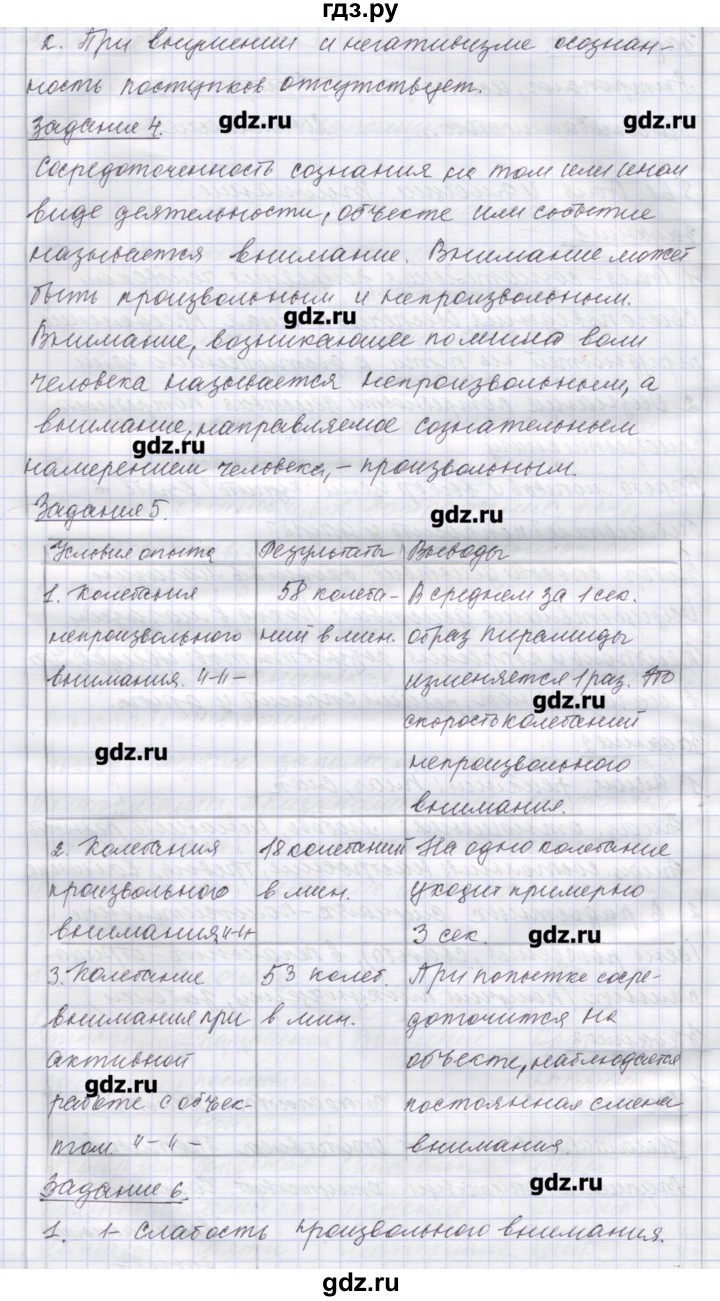 гдз.ру
2. При внушении и негативизме осознан-
ность поступков отсутствует.
Задание 4.
gdz.ru gdz.ru
Сосредоточенность сознания на том или ином
виде деятельности, объекте или событие
называется внимание. Внимание может
быть произвольным и непроизвольным.
gdz.ru
Внимание, возникающее помимо воли
человека называется непроизвольным, а
внимание, направляемое сознательным
gdz.ru
намерением человека, – произвольным.
Задание 5.
gdz.ru
Условия опыта Результаты Выводы
1. Колебания 58 колеба- В среднем за 1 сек.
непроизвольного ний в мин. образ пирамиды
внимания. -"-"- изменяется 1 раз. Это
gdz.ru
скорость колебаний
gdz.ru
непроизвольного
внимания.
2. Колебания 18 колебаний На одно колебание
произвольного в мин. уходит примерно
внимания -"-"- 3 сек.
gdz.ru
3. Колебание 53 колеб. При попытке сосре-
внимания при в мин. доточится на
активной объекте, наблюдается
gdz.ru
работе с объек- постоянная смена
том. -"-"- внимания.
Задание 6.
gdz.ru
1. 1- Слабость произвольного внимания.
gdz.ru